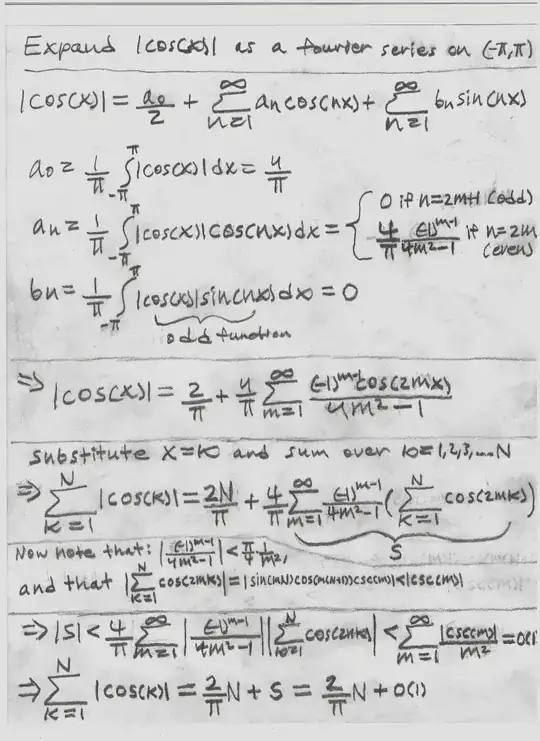 Expand |cos(x)| as a fourier series on (-π,π)
|cos(x)| = a₀/2 + ∑_{n=1}^{∞} aₙcos(nx) + ∑_{n=1}^{∞} bₙsin(nx)
a₀ = 1/π ∫_{-π}^{π} |cos(x)|dx = 4/π
aₙ = 1/π ∫_{-π}^{π} |cos(x)|cos(nx)dx = { 0 if n=2m+1 (odd)
4/π (-1)^{m-1}/(4m²-1) if n=2m (even)
bₙ = 1/π ∫_{-π}^{π} |cos(x)|sin(nx)dx = 0
odd function
⇒ |cos(x)| = 2/π + 4/π ∑_{m=1}^{∞} (-1)^{m-1}cos(2mx)/(4m²-1)
substitute x=k and sum over k=1,2,3,...N
⇒ ∑_{k=1}^{N} |cos(k)| = 2N/π + 4/π ∑_{m=1}^{∞} (-1)^{m-1}/(4m²-1) (∑_{k=1}^{N} cos(2mk))
S
Now note that: |(-1)^{m-1}/(4m²-1)| < π/4 1/m²,
and that |∑_{k=1}^{N} cos(2mk)| = |sin(mN)cos(m(N+1))csc(m)| < |csc(m)|
⇒ |S| < 4/π ∑_{m=1}^{∞} |(-1)^{m-1}/(4m²-1)| |∑_{k=1}^{N} cos(2mk)| < ∑_{m=1}^{∞} |csc(m)|/m² = O(1)
⇒ ∑_{k=1}^{N} |cos(k)| = 2/π N + S = 2/π N + O(1)